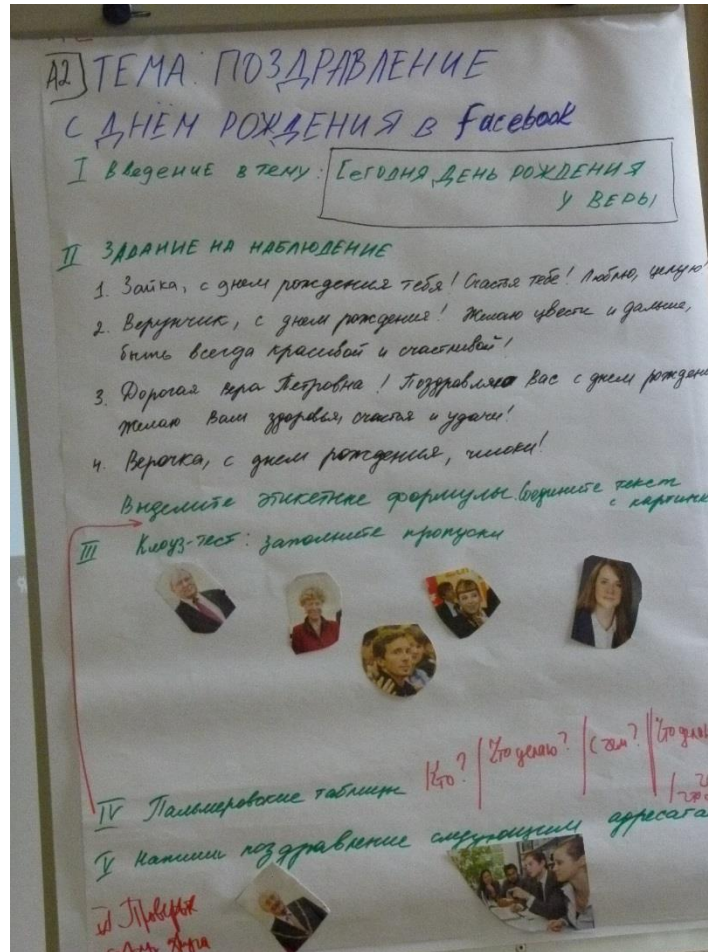 А2 ТЕМА: ПОЗДРАВЛЕНИЕ
С ДНЁМ РОЖДЕНИЯ в facebook
I Введение в тему: Сегодня ДЕНЬ РОЖДЕНИЯ
У ВЕРЫ
II ЗАДАНИЕ НА НАБЛЮДЕНИЕ
1. Зайка, с днем рождения тебя! Счастья тебе! Люблю, целую!
2. Верунчик, с днем рождения! Желаю цвести и дальше,
быть всегда красивой и счастливой!
3. Дорогая Вера Петровна! Поздравляю Вас с днем рождени
Желаю Вам здоровья, счастья и удачи!
4. Верочка, с днем рождения, чмоки!
Выделите этикетные формулы. Соедините текст
с картинк
III Клоуз-тест: заполните пропуски
Кто? Что делаю? С чем? Что дела
IV Пальмеровские таблицы
V Напиши поздравление следующим адресата
Проверьте
друг друга